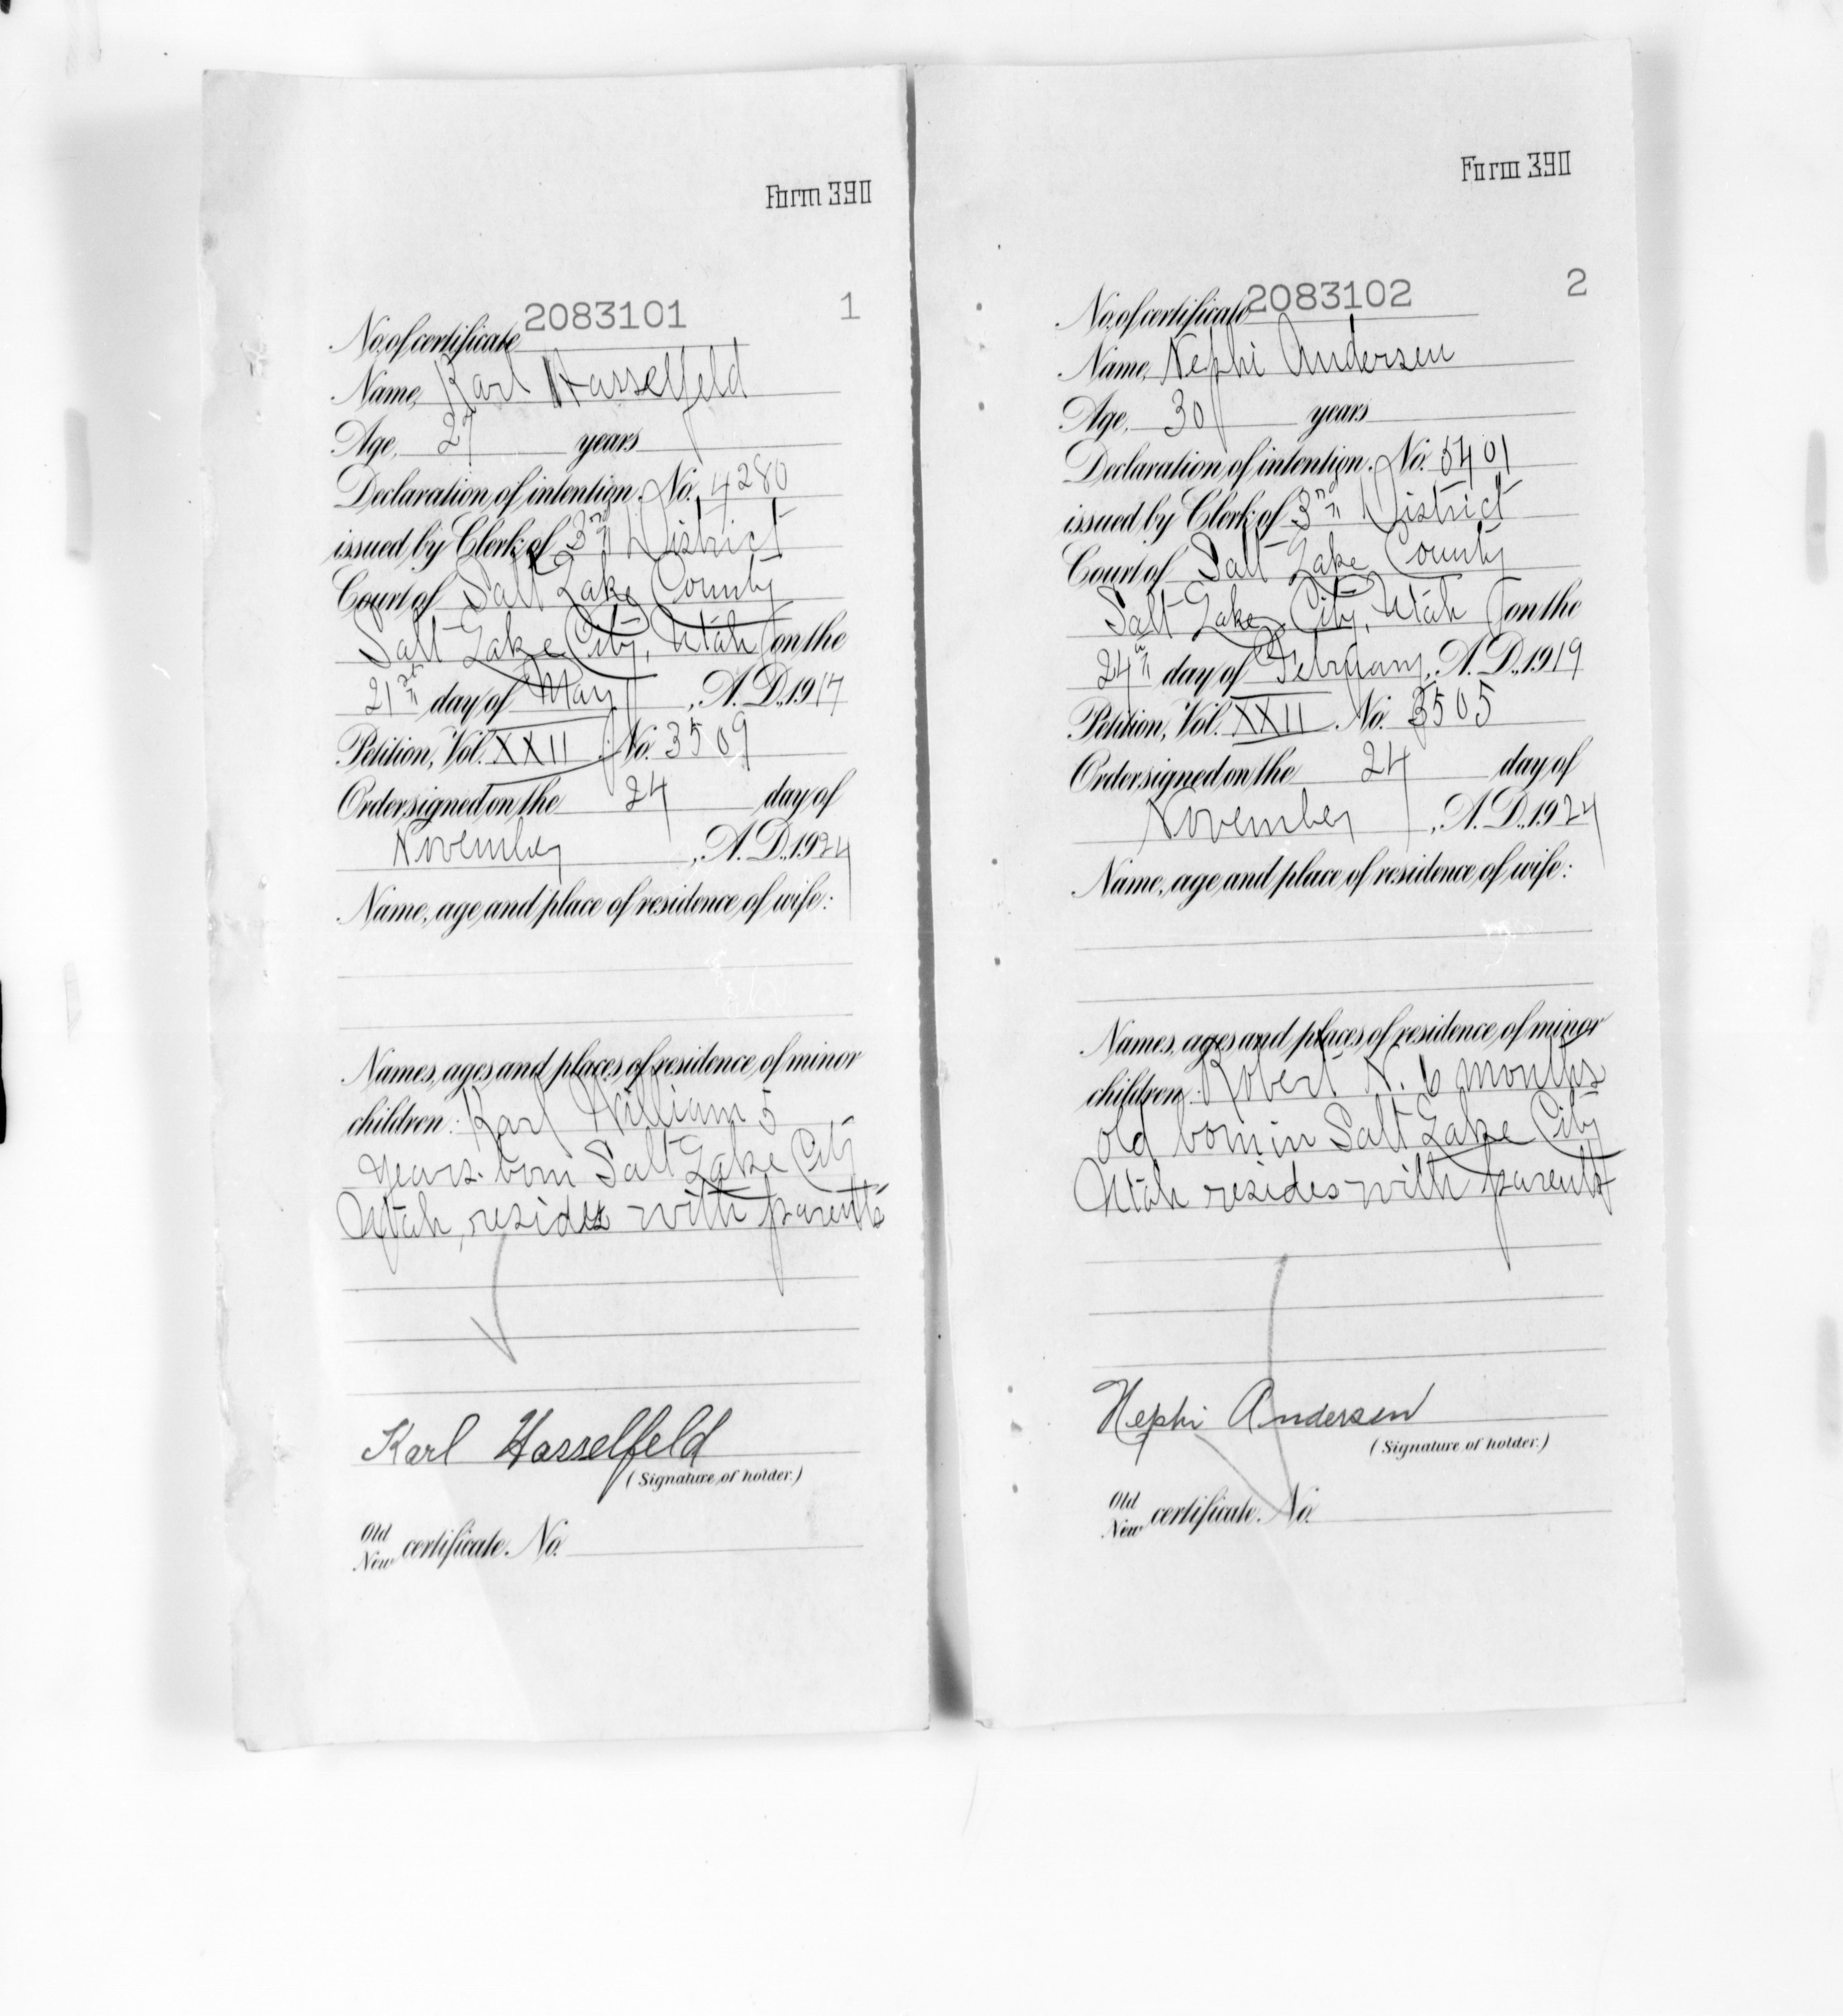 Form 390
No. of certificate 2083101 1
Name, Karl Hasselfeld
Age, 27 years
Declaration of intention, No. 4280
issued by Clerk of 3rd District
Court of Salt Lake County
Salt Lake City, Utah on the
21st day of May, A. D., 1917
Petition, Vol. XXII, No. 3509
Order signed on the 24 day of
November, A. D., 1924
Name, age and place of residence of wife:
Names, ages and places of residence of minor
children: Karl William 5
years. born Salt Lake City
Utah, resides with parents
Karl Hasselfeld
(Signature of holder.)
Old
New certificate. No.
Form 390
No. of certificate 2083102 2
Name, Nephi Andersen
Age, 30 years
Declaration of intention, No. 5401
issued by Clerk of 3rd District
Court of Salt Lake County
Salt Lake City, Utah on the
24th day of February, A. D., 1919
Petition, Vol. XXII, No. 3505
Order signed on the 24 day of
November, A. D., 1924
Name, age and place of residence of wife:
Names, ages and places of residence of minor
children: Robert N. 6 months
old born in Salt Lake City
Utah resides with parents
Nephi Andersen
(Signature of holder.)
Old
New certificate. No.